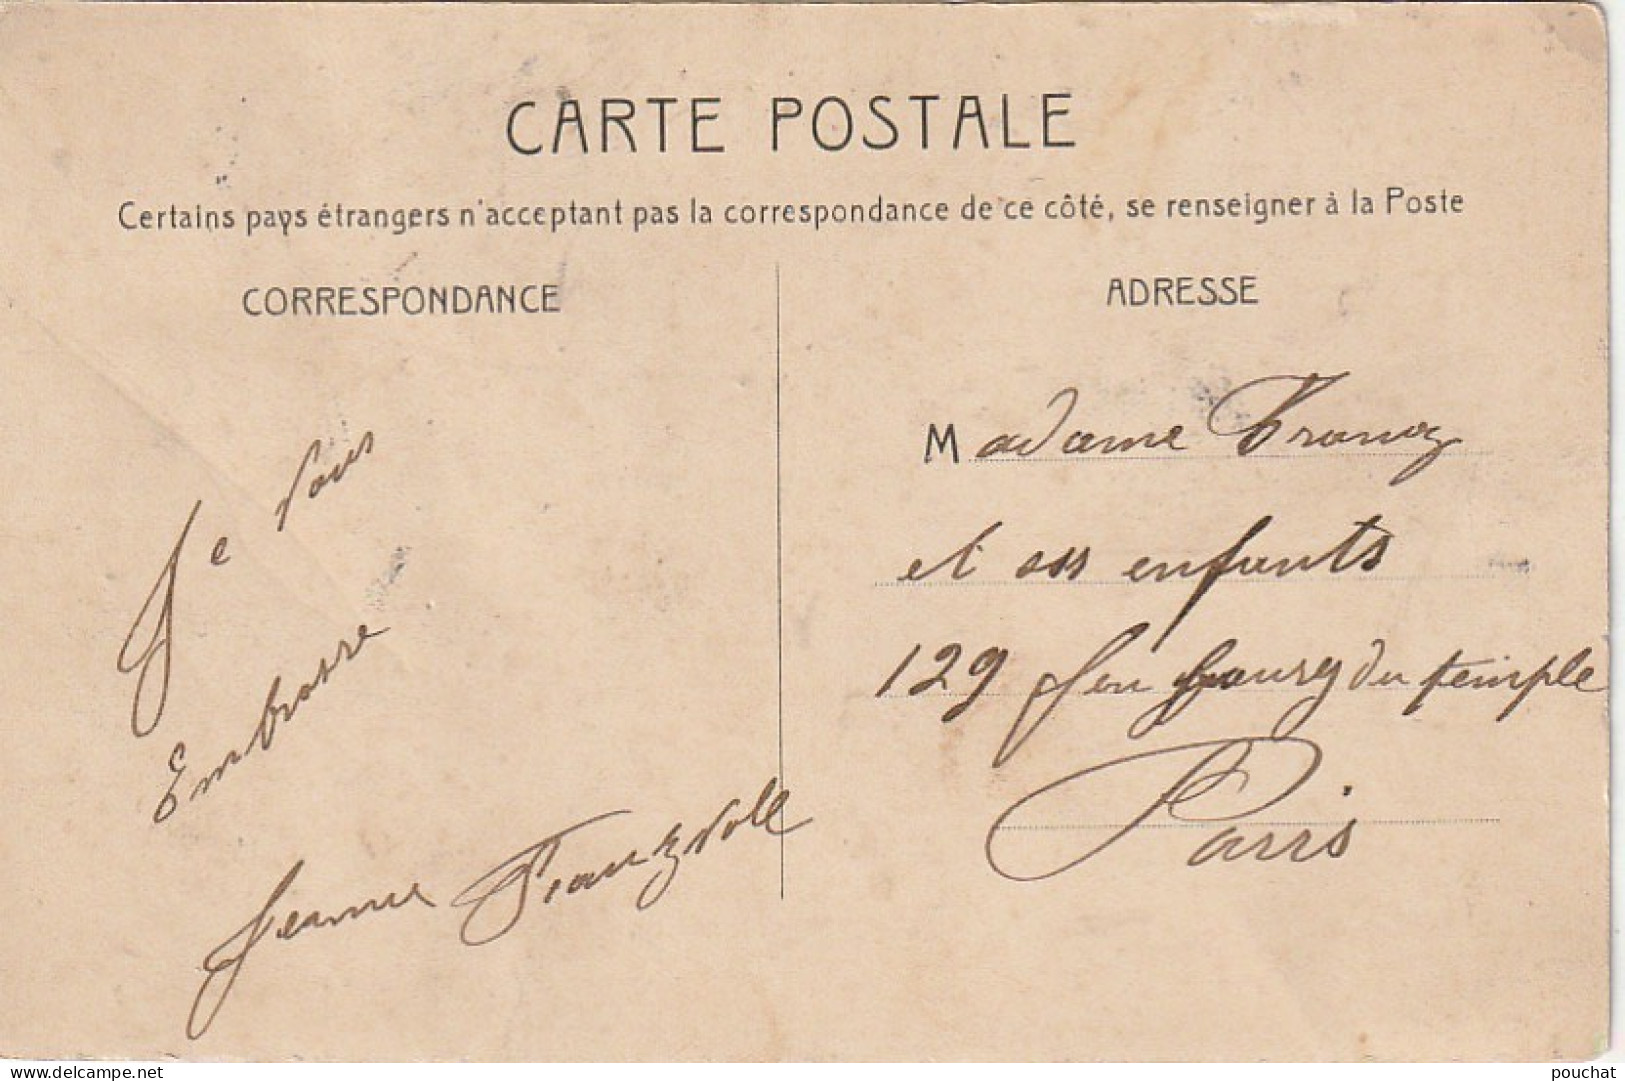 CARTE POSTALE
Certains pays étrangers n'acceptant pas la correspondance de ce côté, se renseigner à la Poste
CORRESPONDANCE
Je vous
Embrasse
Jeanne
ADRESSE
Madame Franz
et ses enfants
129 du temple
Paris
www.delcampe.net
pouchat